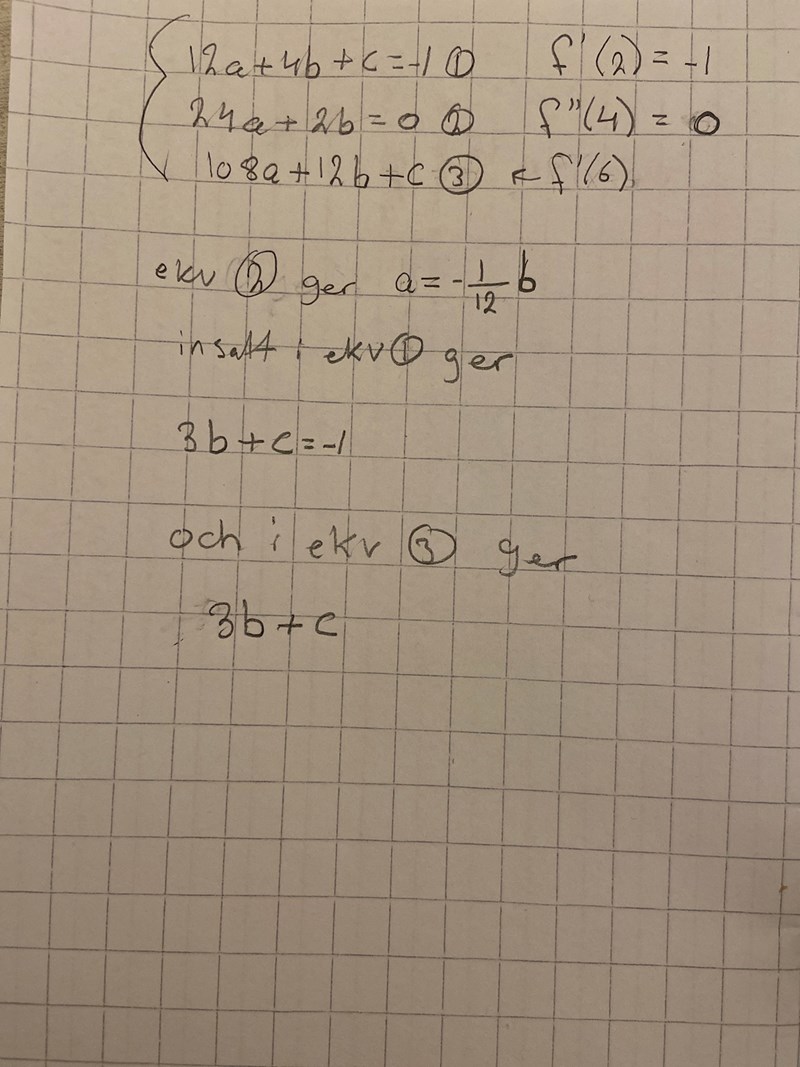 12a+4b+c=-1 ① f'(2) = -1
24a+2b=0 ② f''(4) = 0
108a+12b+c ③ ← f'(6)
ekv ② ger a=-1/12 b
insatt i ekv ① ger
3b+c=-1
och i ekv ③ ger
3b+c